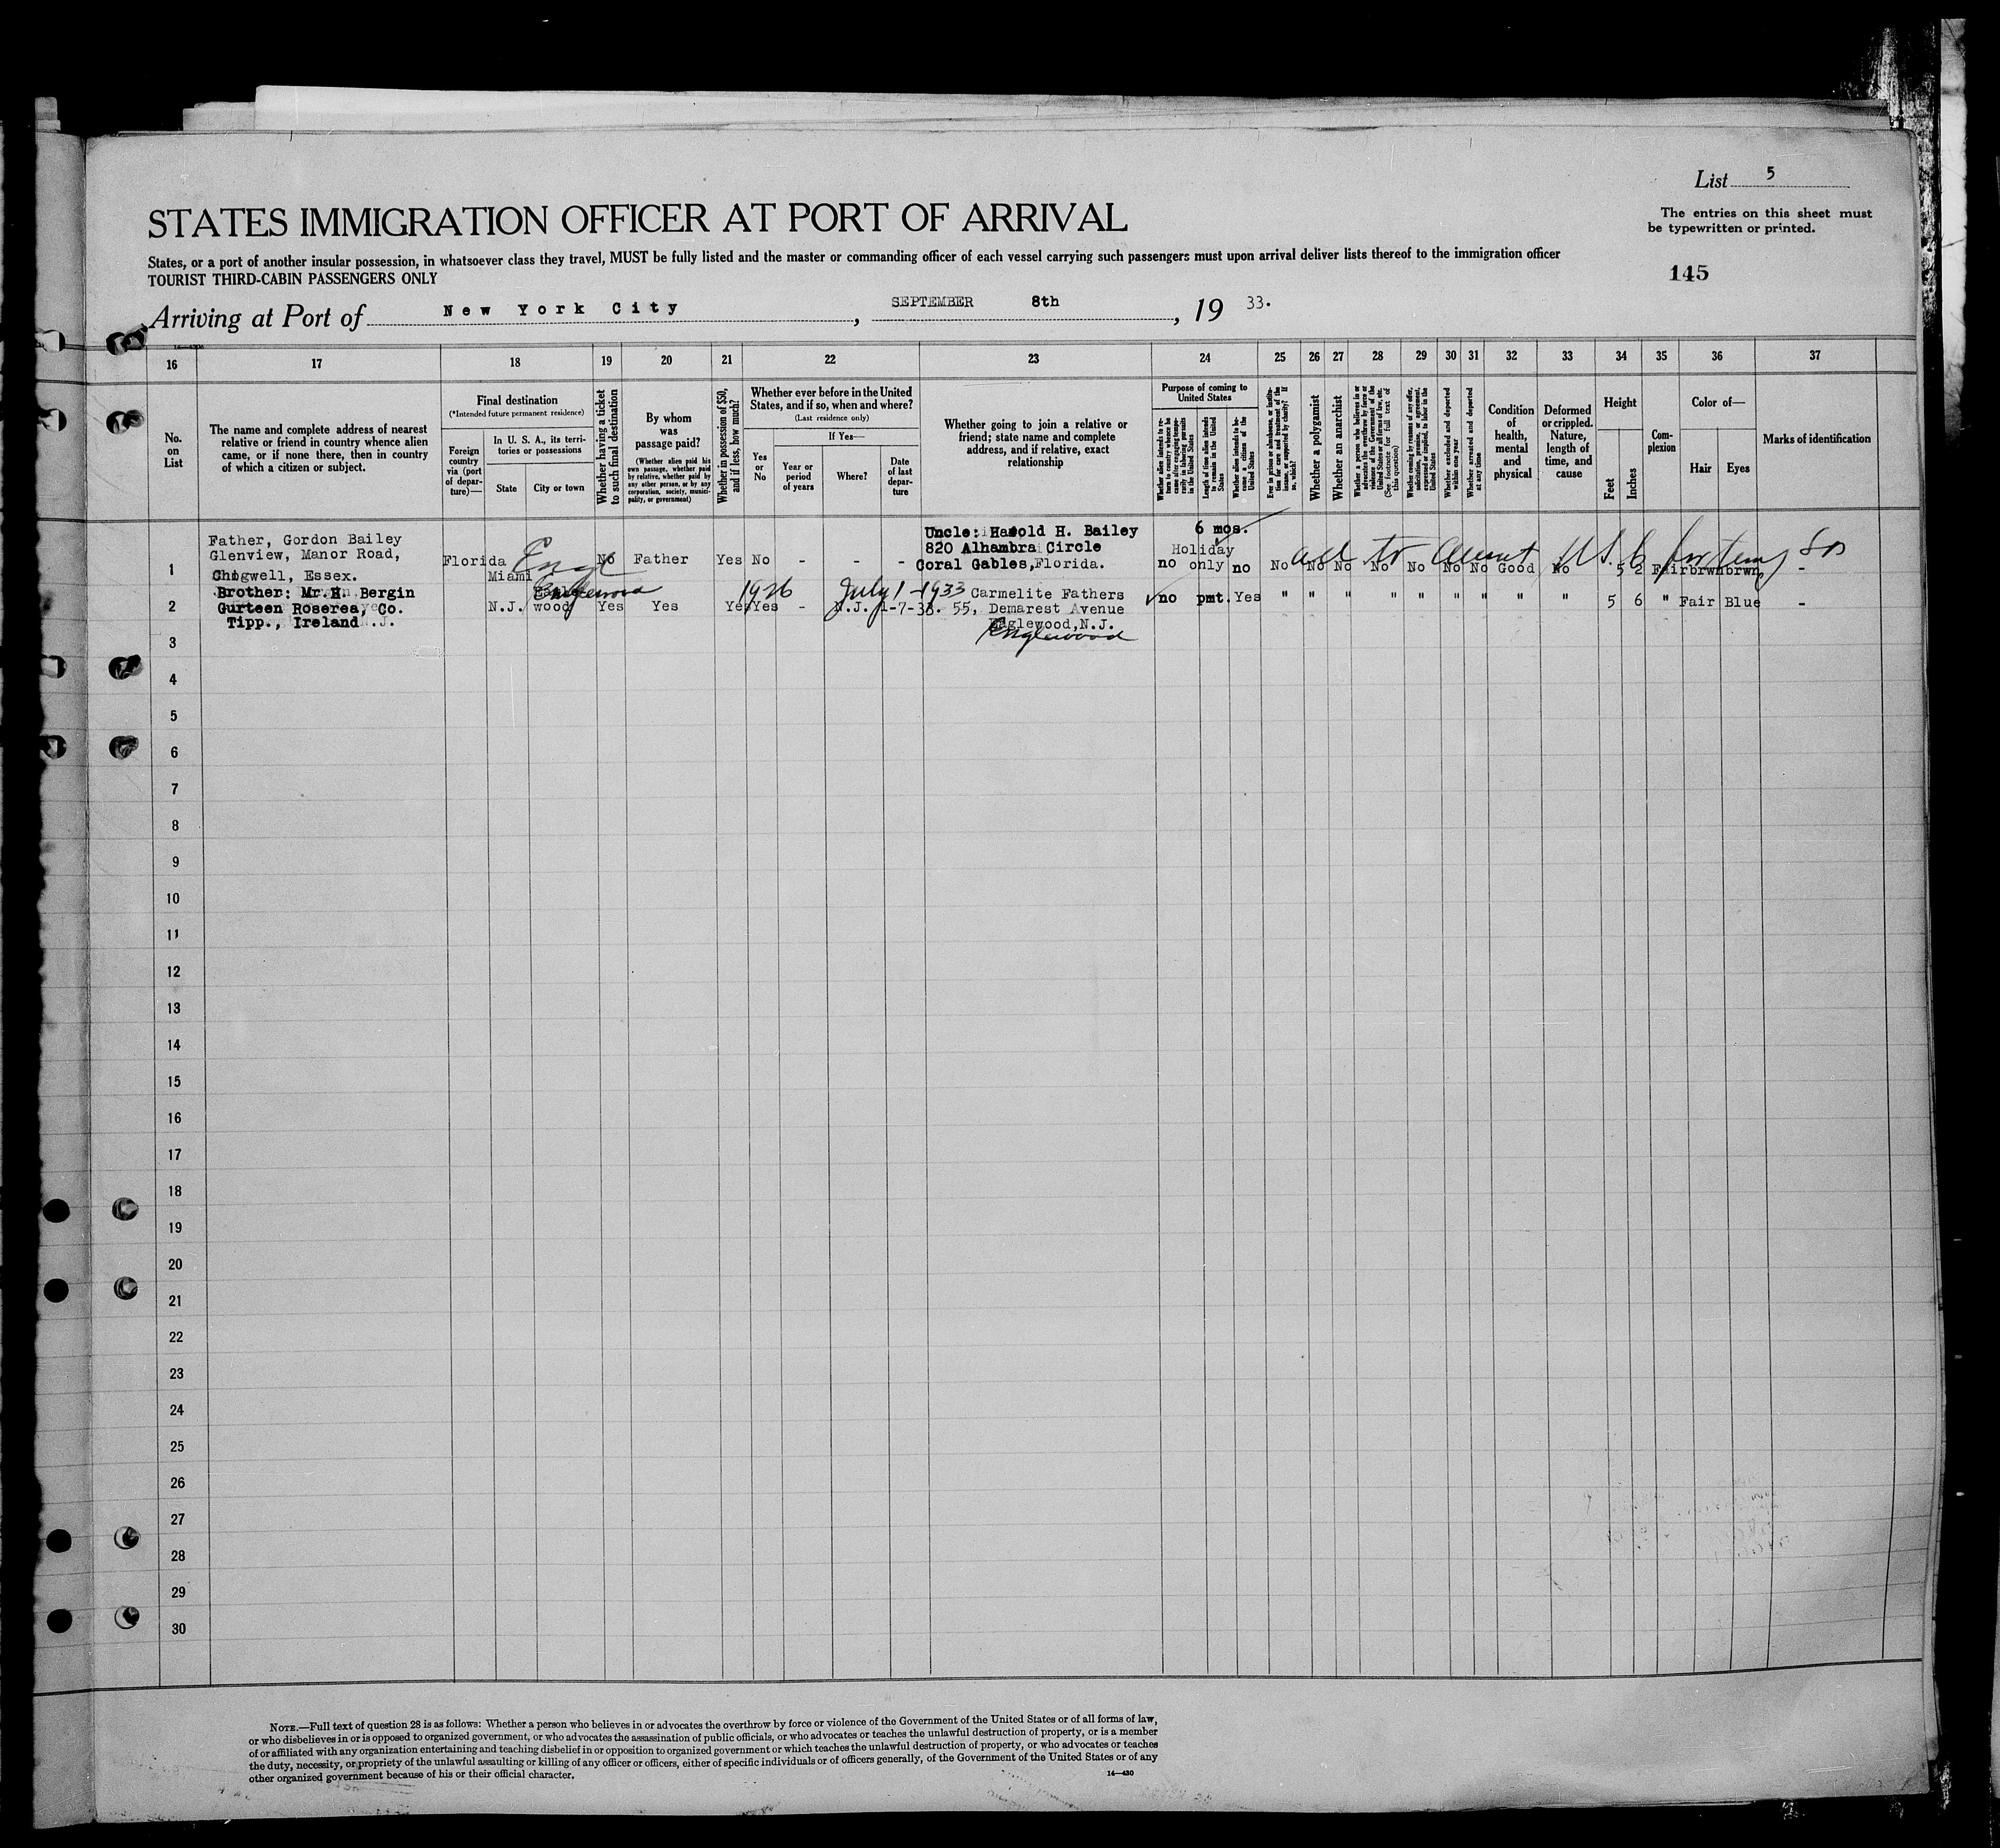 List 5
STATES IMMIGRATION OFFICER AT PORT OF ARRIVAL
The entries on this sheet must
be typewritten or printed.
States, or a port of another insular possession, in whatsoever class they travel, MUST be fully listed and the master or commanding officer of each vessel carrying such passengers must upon arrival deliver lists thereof to the immigration officer
TOURIST THIRD-CABIN PASSENGERS ONLY
145
Arriving at Port of New York City, SEPTEMBER 8th, 19 33.
16 17 18 19 20 21 22 23 24 25 26 27 28 29 30 31 32 33 34 35 36 37
No.
on
List
The name and complete address of nearest
relative or friend in country whence alien
came, or if none there, then in country
of which a citizen or subject.
Final destination
(*Intended future permanent residence)
Foreign
country
via (port
of depar-
ture)—
In U. S. A., its terri-
tories or possessions
State
City or town
Whether having a ticket
to such final destination
By whom
was
passage paid?
(Whether alien paid his
own passage, whether paid
by relative, whether paid by
any other person, or by any
corporation, society, munici-
pality, or government)
Whether in possession of $50,
and if less, how much?
Whether ever before in the United
States, and if so, when and where?
(Last residence only)
Yes
or
No
If Yes—
Year or
period
of years
Where?
Date
of last
depar-
ture
Whether going to join a relative or
friend; state name and complete
address, and if relative, exact
relationship
Purpose of coming to
United States
Whether alien intends to re-
turn to country whence he
came after engaging tempo-
rarily in laboring pursuits
in the United States
Length of time alien intends
to remain in the United
States
Whether alien intends to be-
come a citizen of the
United States
Ever in prison or almshouse, or institu-
tion for care and treatment of the
insane, or supported by charity? If
so, which?
Whether a polygamist
Whether an anarchist
Whether a person who believes in or
advocates the overthrow by force or
violence of the Government of the
United States or all forms of law, etc.
(See footnote for full text of
this question)
Whether coming by reasons of any offer,
solicitation, promise, or agreement,
expressed or implied, to labor in the
United States
Whether excluded and deported
within one year
Whether arrested and deported
at any time
Condition
of
health,
mental
and
physical
Deformed
or crippled.
Nature,
length of
time, and
cause
Height
Feet
Inches
Com-
plexion
Color of—
Hair
Eyes
Marks of identification
Father, Gordon Bailey
Glenview, Manor Road,
Chigwell, Essex.
1 Florida Miami No Father Yes No - - -
Uncle: Harold H. Bailey
820 Alhambra Circle
Coral Gables, Florida.
6 mos.
Holiday
no only no No No No No No No No Good No 5 2 Fair brwn brwn -
Brother: Mr. H. Bergin
Gurteen Roserea, Co.
Tipp., Ireland
2 N.J. Englewood Yes Yes Yes Yes 1926 - N.J. July 1-1933 1-7-33.
Carmelite Fathers
55, Demarest Avenue
Englewood, N.J.
Englewood
no pmt. Yes " " " " " " " " " 5 6 " Fair Blue -
3
4
5
6
7
8
9
10
11
12
13
14
15
16
17
18
19
20
21
22
23
24
25
26
27
28
29
30
NOTE.—Full text of question 28 is as follows: Whether a person who believes in or advocates the overthrow by force or violence of the Government of the United States or of all forms of law,
or who disbelieves in or is opposed to organized government, or who advocates the assassination of public officials, or who advocates or teaches the unlawful destruction of property, or is a member
of or affiliated with any organization entertaining and teaching disbelief in or opposition to organized government or which teaches the unlawful destruction of property, or who advocates or teaches
the duty, necessity, or propriety of the unlawful assaulting or killing of any officer or officers, either of specific individuals or of officers generally, of the Government of the United States or of any
other organized government because of his or their official character.
14—430